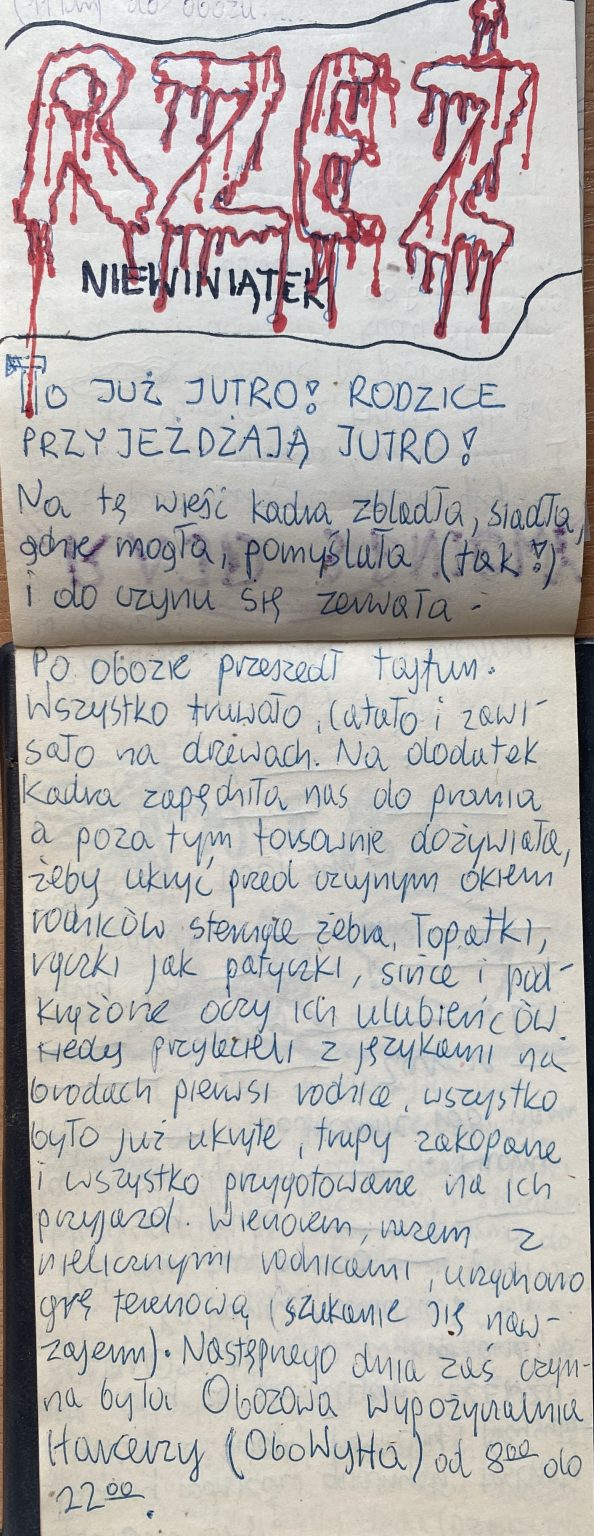 do obozu......
RZEŹ
NIEWINIĄTEK
TO JUŻ JUTRO! RODZICE
PRZYJEŻDŻAJĄ JUTRO!
Na tę wieść kadra zbladła, siadła,
gdzie mogła, pomyślała (tak!)
i do czynu się zerwała -
Po obozie przeszedł tajfun.
Wszystko fruwało, latało i zawi-
sało na drzewach. Na dodatek
kadra zapędziła nas do prania
a poza tym forsownie dożywiała,
żeby ukryć przed czujnym okiem
rodziców sterczące żebra, łopatki,
rączki jak patyczki, sińce i pod-
krążone oczy ich ulubieńców.
Kiedy przybiegli z językami na
brodach pierwsi rodzice, wszystko
było już ukryte, trupy zakopane
i wszystko przygotowane na ich
przyjazd. Wieczorem, razem z
nielicznymi rodzicami, urządzono
grę terenową (szukanie się naw-
zajem). Następnego dnia zaś czyn-
na była Obozowa Wypożyczalnia
Harcerzy (OboWyHa) od 8⁰⁰ do
22⁰⁰.